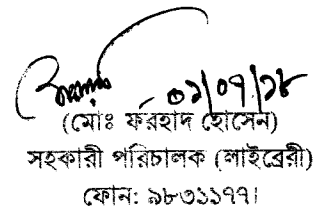 ০১/০৭/১৮
(মোঃ ফরহাদ হোসেন)
সহকারী পরিচালক (লাইব্রেরী)
ফোন: ৯৮৩১১৭৭।